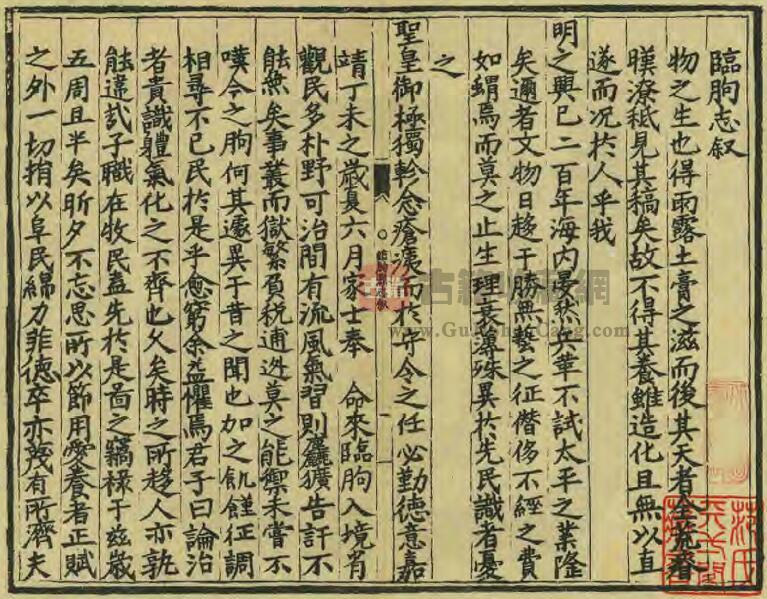 臨朐志叙
物之生也得雨露土膏之滋而後其天者全旒畚
暵潦秪見其槁矣故不得其養雖造化且無以直
遂而况扵人乎我
明之興已二百年海内晏然兵革不試太平之業隆
矣邇者文物日趍于勝無藝之征僭侈不經之費
如蝟焉而莫之止生理衰薄殊異扵先民識者憂
之
聖皇御極獨軫念瘡痍而扵守令之任必勤德意嘉
靖丁未之歲夏六月家士奉 命來臨朐入境省
觀民多朴野可治間有流風氣習則麤獷告訐不
能無矣事叢而獄繁負稅逋逃莫之能禦未嘗不
嘆今之朐何其遽異于昔之聞也加之飢饉征調
相尋不已民扵是乎愈窮余益懼焉君子曰論治
者貴識軆氣化之不齊也久矣時之所趍人亦孰
能違哉子職在牧民盍先扵是啚之竊禄于兹歲
五周且半矣昕夕不忘思所以節用愛養者正賦
之外一切捐以阜民綿力菲德卒亦蔑有所濟夫
古籍收藏網
www.GuJiShuCang.com